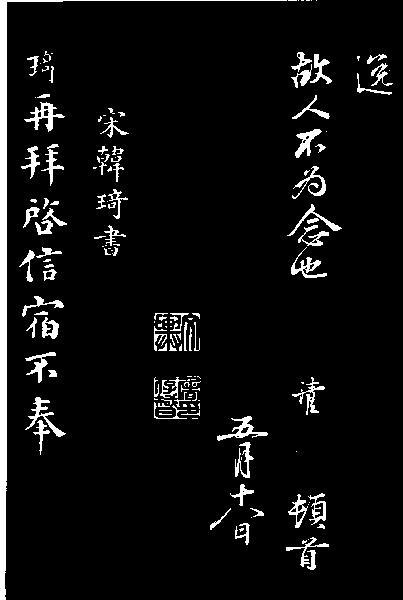 故人不为念也
頓首
五月十八日
宋韓琦書
琦再拜啓信宿不奉